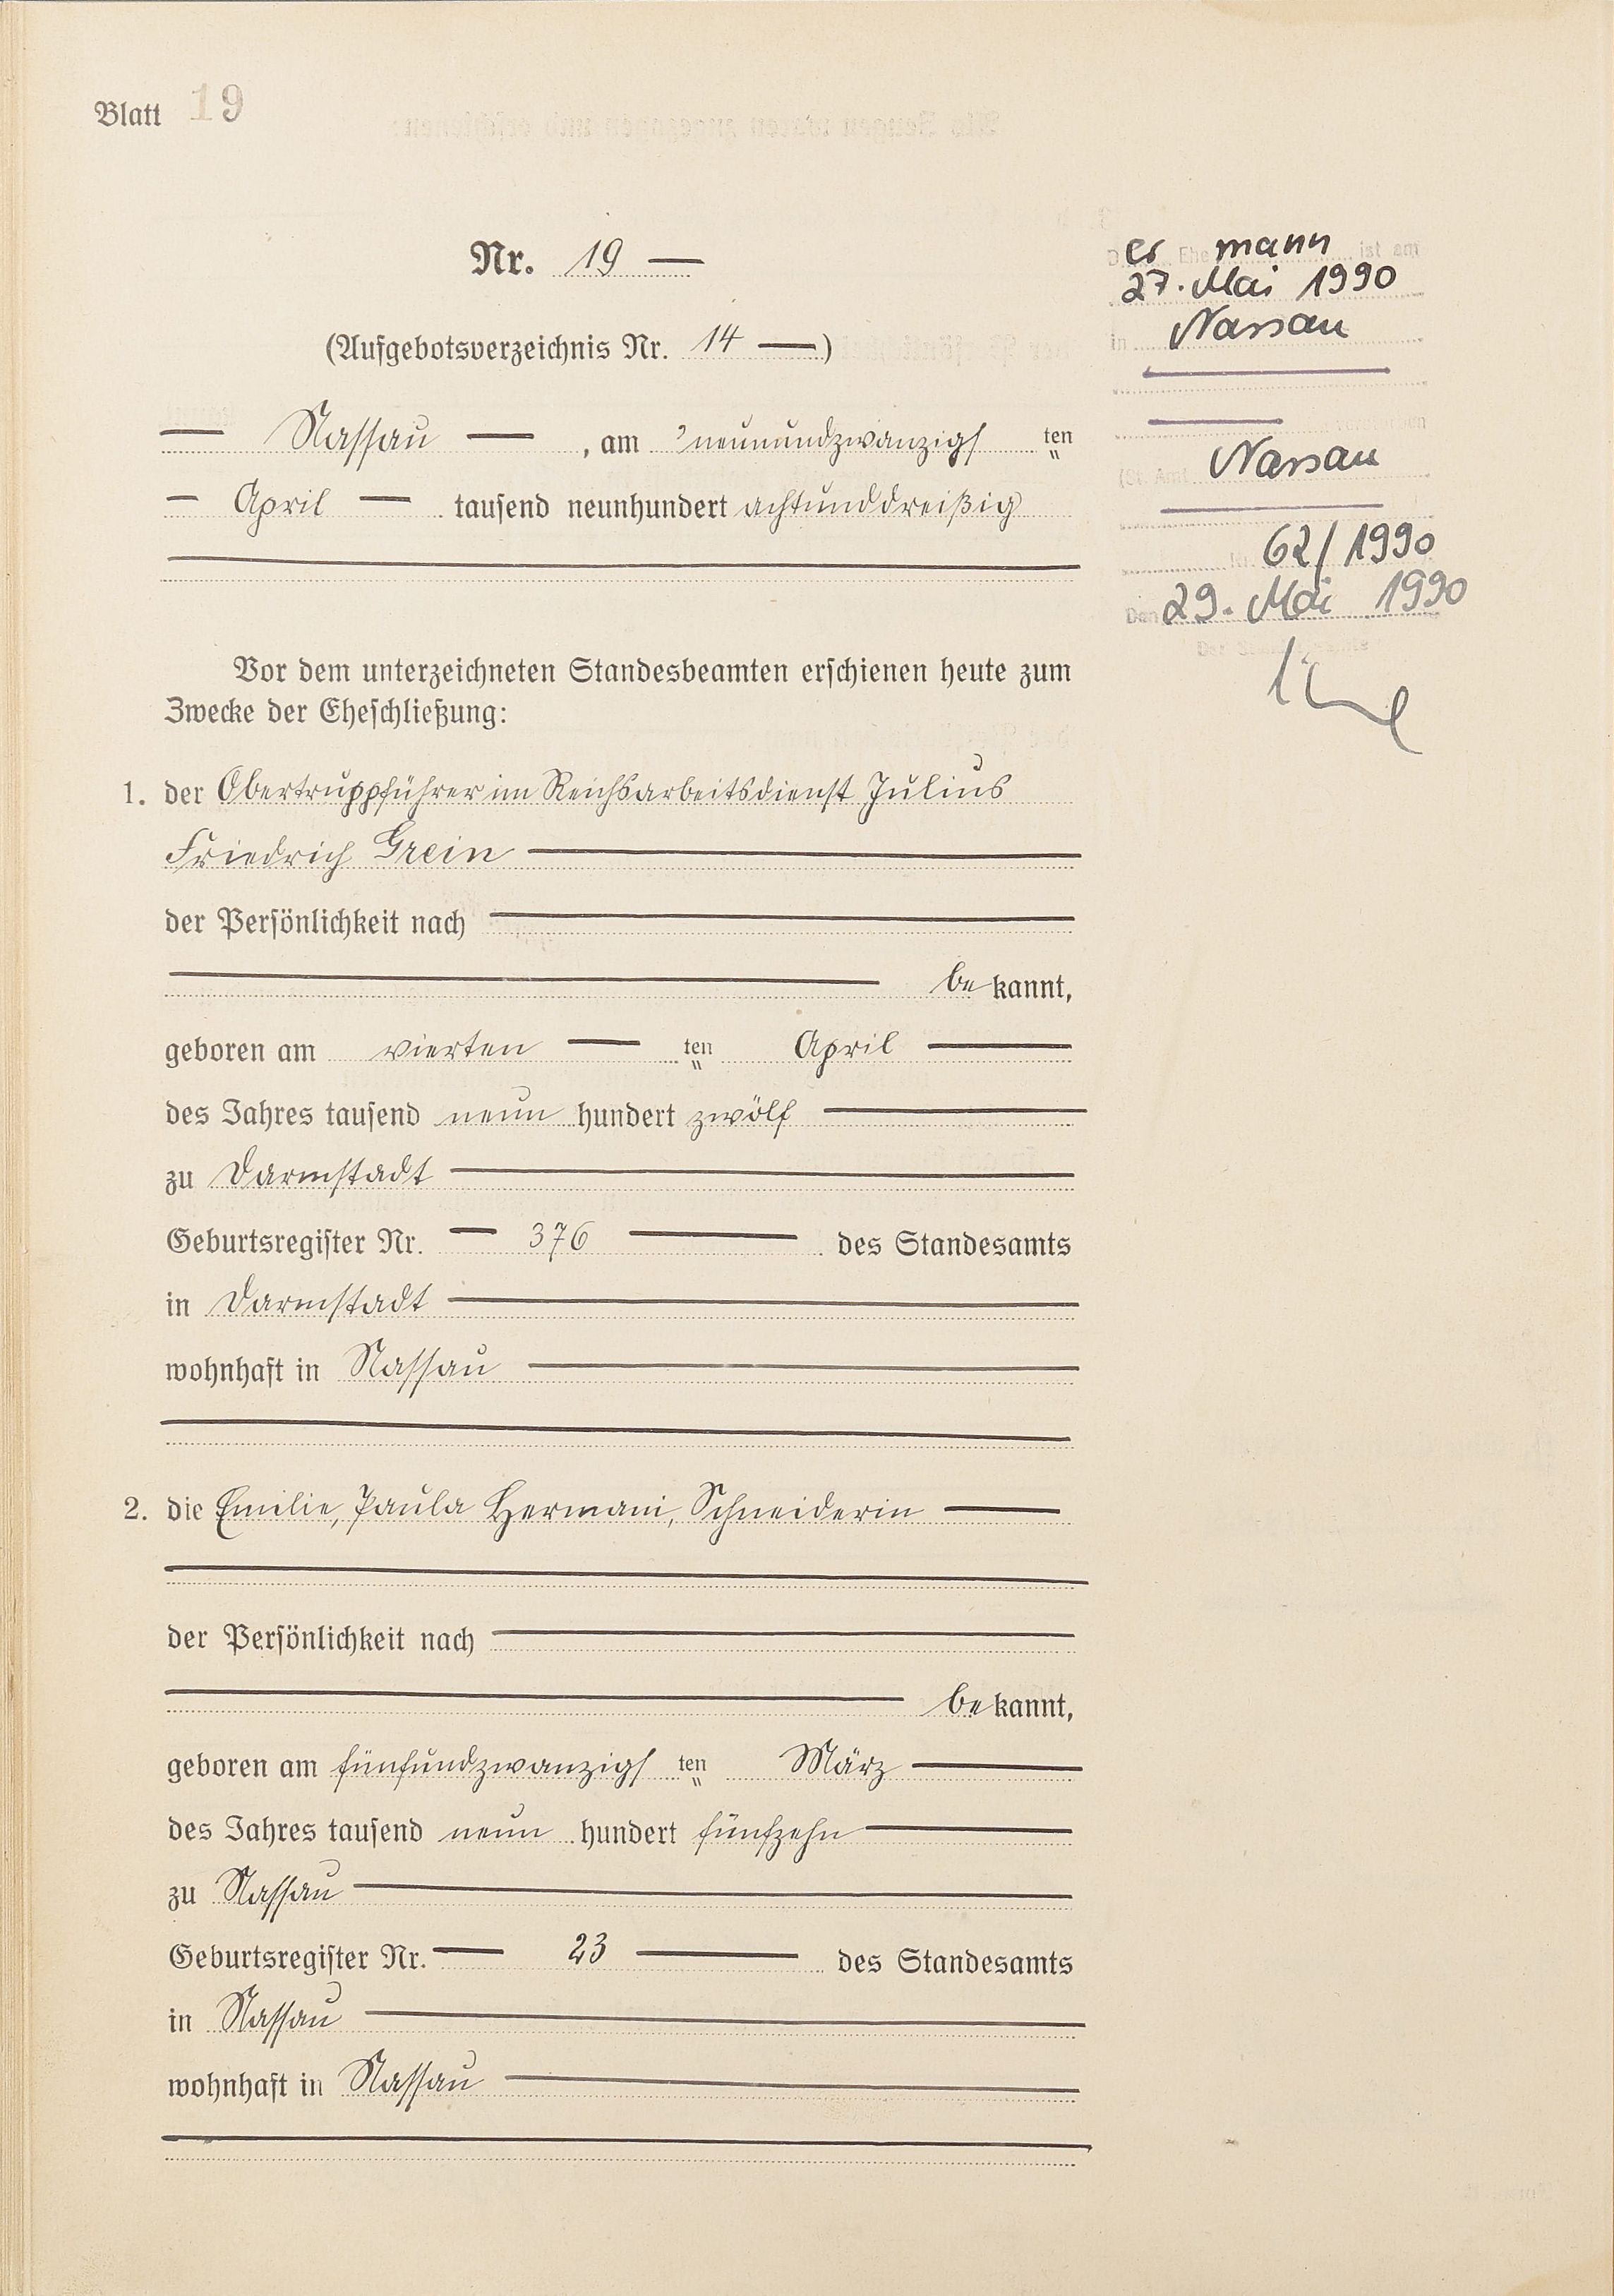 Blatt 19
Nr. 19 —
(Aufgebotsverzeichnis Nr. 14 —)
— Nassau —, am neunundzwanzigs ten
— April — tausend neunhundert achtunddreißig
Vor dem unterzeichneten Standesbeamten erschienen heute zum
Zwecke der Eheschließung:
1. der Obertruppführer im Reichsarbeitsdienst Julius
Friedrich Grein
der Persönlichkeit nach
be kannt,
geboren am vierten — ten April
des Jahres tausend neun hundert zwölf
zu Darmstadt
Geburtsregister Nr. — 376 — des Standesamts
in Darmstadt
wohnhaft in Nassau
2. die Emilie, Paula Hermani, Schneiderin
der Persönlichkeit nach
be kannt,
geboren am fünfundzwanzigs ten März
des Jahres tausend neun hundert fünfzehn
zu Nassau
Geburtsregister Nr. — 23 — des Standesamts
in Nassau
wohnhaft in Nassau
Der Ehemann ist am
27. Mai 1990
in Nassau
verstorben
(St. Amt Nassau
Nr. 62/1990
Den 29. Mai 1990
Der Standesbeamte